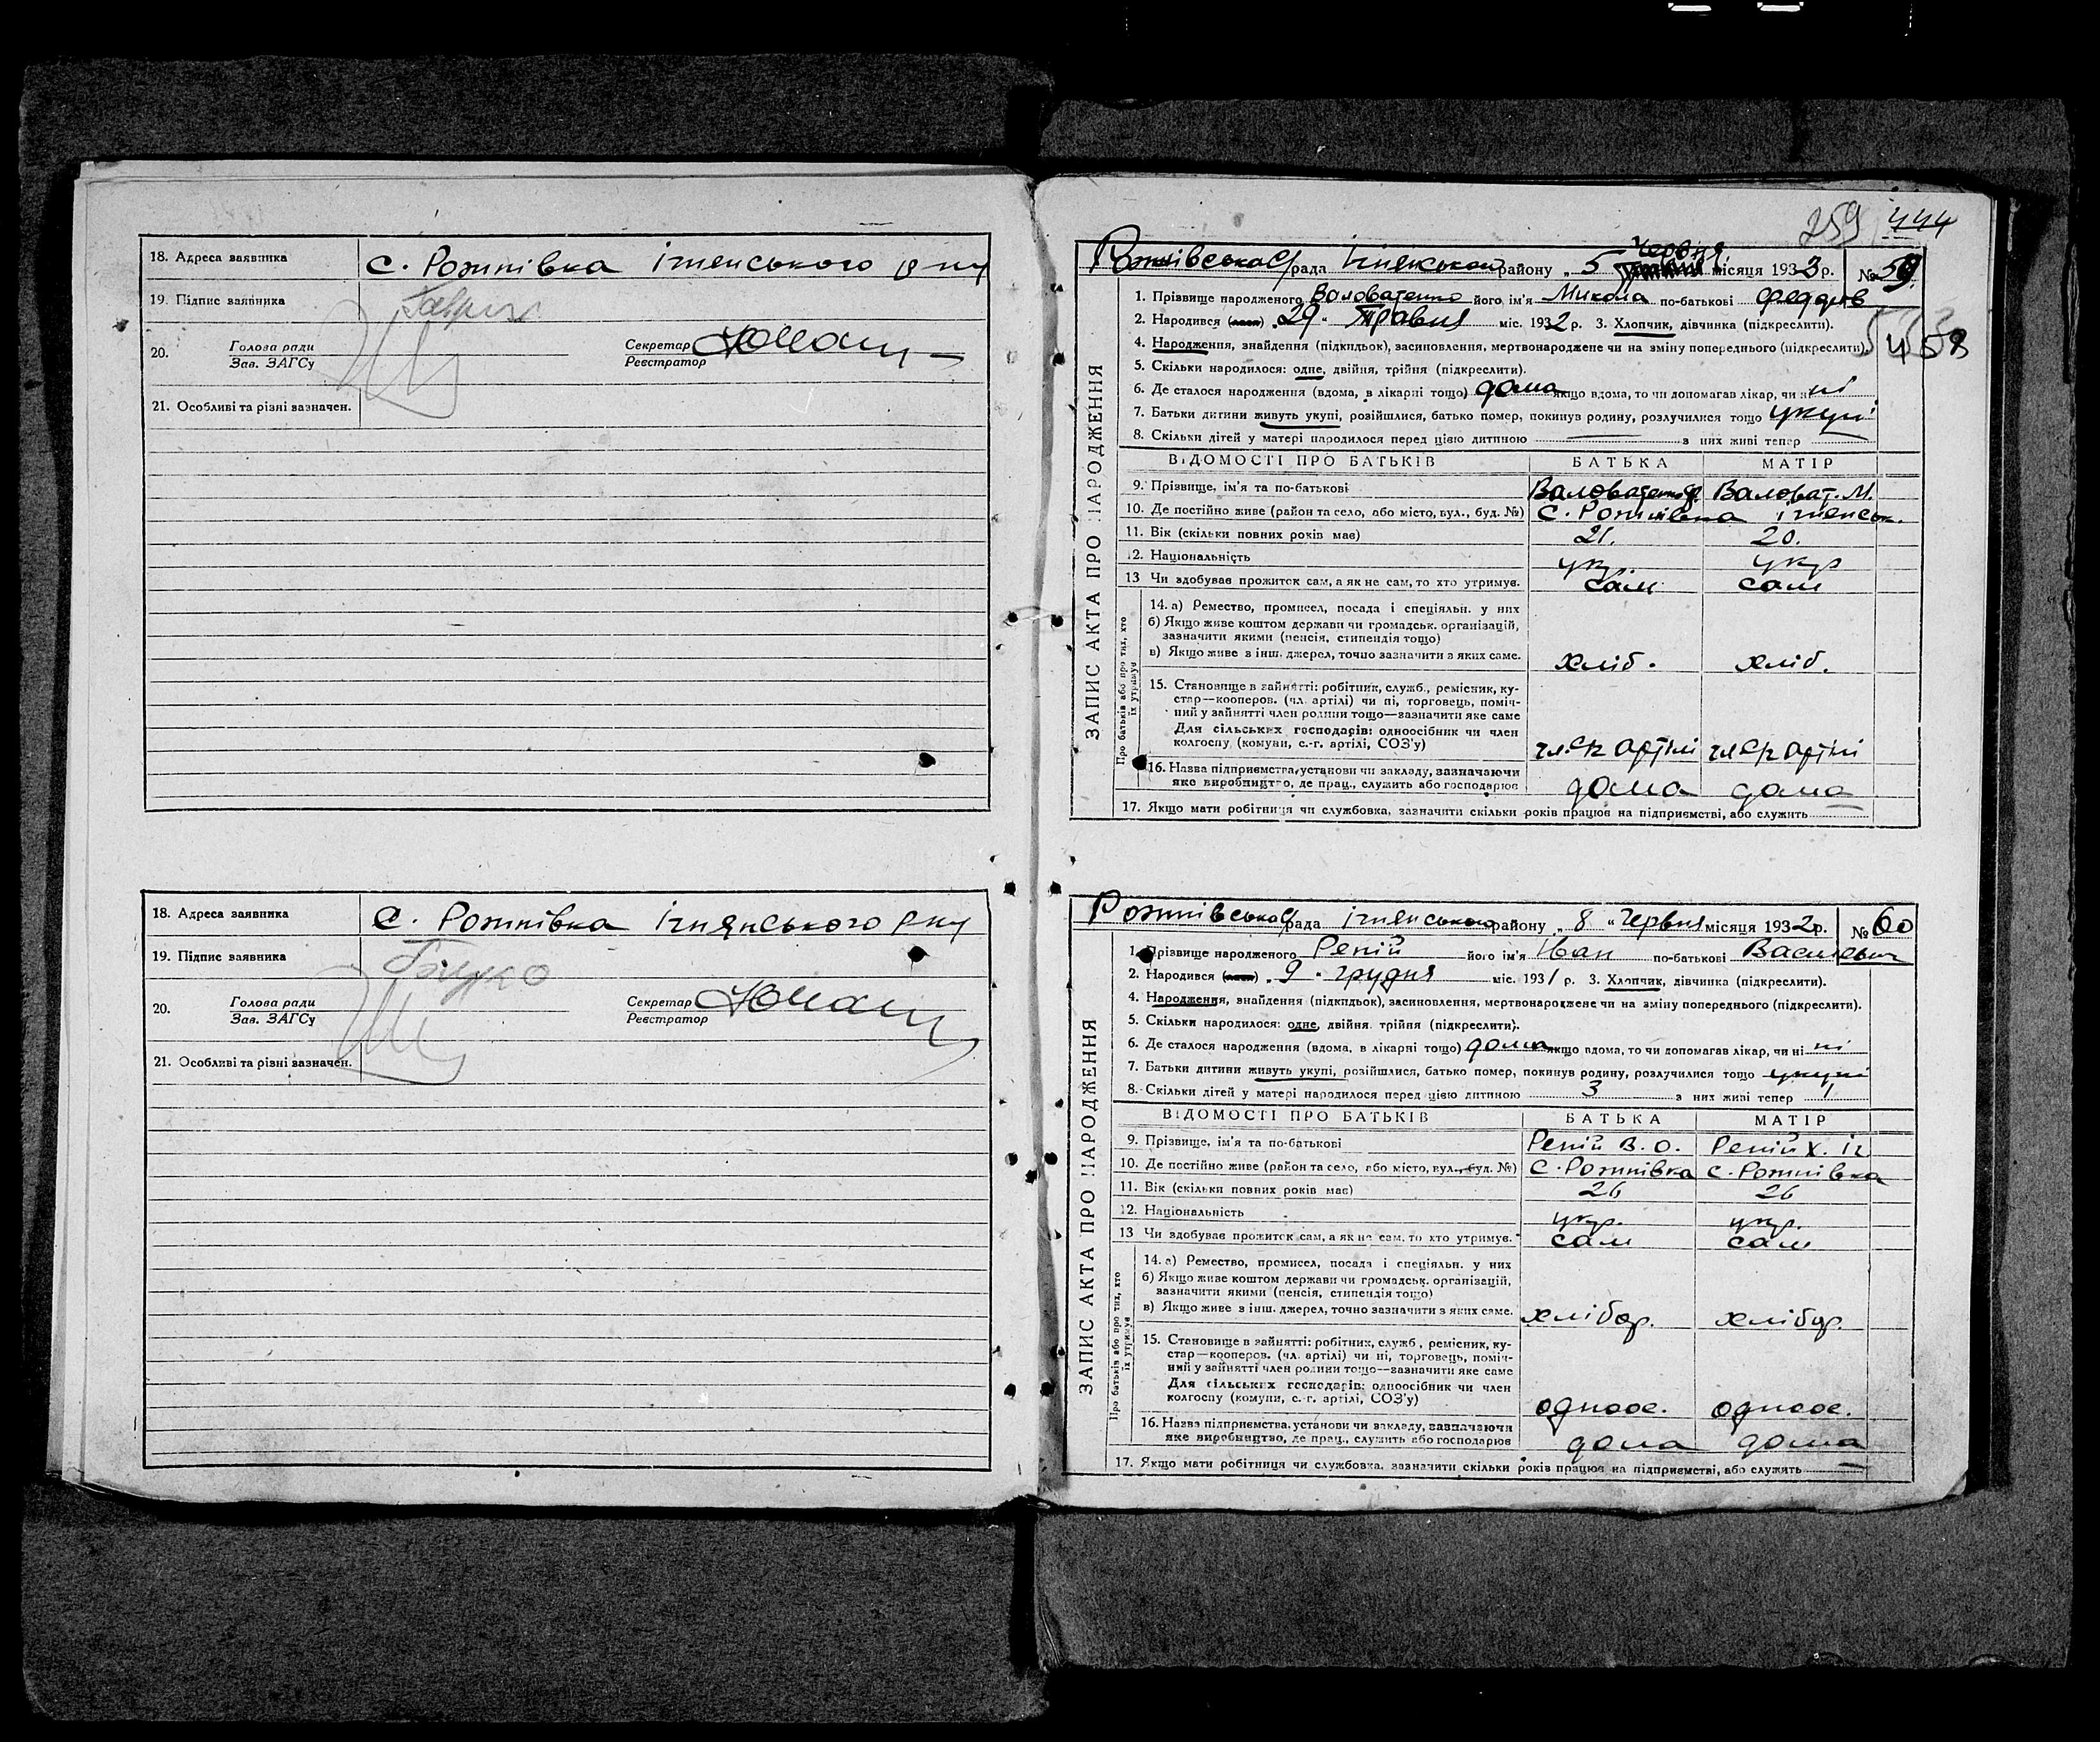 18. Адреса заявника с. Рожнівка ічнянського р-ну
19. Підпис заявника
20. Голова ради Секретар
Зав. ЗАГСу Реєстратор
21. Особливі та різні зазначен.
18. Адреса заявника с. Рожнівка ічнянського р-ну
19. Підпис заявника
20. Голова ради Секретар
Зав. ЗАГСу Реєстратор
21. Особливі та різні зазначен.
259 444
ЗАПИС АКТА ПРО НАРОДЖЕННЯ
Рожнівська с/рада Ічнянського району „ 5 червня місяця 1933 р. № 59
1. Прізвище народженого Воловатенко його ім'я Микола по-батькові Федоров
2. Народився „ 29 " Травня міс. 1932 р. 3. Хлопчик, дівчинка (підкреслити).
4. Народження, знайдення (підкидьок), засиновлення, мертвонароджене чи на зміну попереднього (підкреслити).
5. Скільки народилося: одне, двійня, трійня (підкреслити).
6. Де сталося народження (вдома, в лікарні тощо) дома якщо вдома, то чи допомагав лікар, чи ні ні
7. Батьки дитини живуть укупі, розійшлися, батько помер, покинув родину, розлучилися тощо укупі
8. Скільки дітей у матері народилося перед цією дитиною — з них живі тепер
ВІДОМОСТІ ПРО БАТЬКІВ БАТЬКА МАТІР
9. Прізвище, ім'я та по-батькові Воловатенко Ф. Воловат. М.
10. Де постійно живе (район та село, або місто, вул., буд. №) с. Рожнівка ічнянськ.
11. Вік (скільки повних років має) 21. 20.
12. Національність укр. укр
13 Чи здобуває прожиток сам, а як не сам, то хто утримує. сам сам
Про батьків або про тих, хто їх утримує
14. а) Ремество, промисел, посада і спеціяльн. у них
б) Якщо живе коштом держави чи громадськ. організацій,
зазначити якими (пенсія, стипендія тощо)
в) Якщо живе з інш. джерел, точно зазначити з яких саме. хліб. хліб.
15. Становище в зайнятті: робітник, служб., ремісник, ку-
стар—кооперов. (чл. артілі) чи ні, торговець, поміч-
ний у зайнятті член родини тощо—зазначити яке саме
Для сільських господарів: одноосібник чи член
колгоспу (комуни, с.-г. артілі, СОЗ'у) чл. с/г артілі чл. с/г артілі
16. Назва підприємства, установи чи закладу, зазначаючи
яке виробництво, де прац., служить або господарює дома дома
17. Якщо мати робітниця чи службовка, зазначити скільки років працює на підприємстві, або служить
ЗАПИС АКТА ПРО НАРОДЖЕННЯ
Рожнівська с/рада ічнянського району „ 8 " Червня місяця 1932 р. № 60
1. Прізвище народженого Репій його ім'я Иван по-батькові Васильевич
2. Народився „ 9 " грудня міс. 1931 р. 3. Хлопчик, дівчинка (підкреслити).
4. Народження, знайдення (підкидьок), засиновлення, мертвонароджене чи на зміну попереднього (підкреслити).
5. Скільки народилося: одне, двійня, трійня (підкреслити).
6. Де сталося народження (вдома, в лікарні тощо) дома якщо вдома, то чи допомагав лікар, чи ні ні
7. Батьки дитини живуть укупі, розійшлися, батько помер, покинув родину, розлучилися тощо укупі
8. Скільки дітей у матері народилося перед цією дитиною 3 з них живі тепер 1
ВІДОМОСТІ ПРО БАТЬКІВ БАТЬКА МАТІР
9. Прізвище, ім'я та по-батькові Репій В. О. Репій Х. Ік
10. Де постійно живе (район та село, або місто, вул., буд. №) с. Рожнівка с. Рожнівка
11. Вік (скільки повних років має) 26 26
12. Національність укр. укр.
13 Чи здобуває прожиток сам, а як не сам, то хто утримує. сам сам
Про батьків або про тих, хто їх утримує
14. а) Ремество, промисел, посада і спеціяльн. у них
б) Якщо живе коштом держави чи громадськ. організацій,
зазначити якими (пенсія, стипендія тощо)
в) Якщо живе з інш. джерел, точно зазначити з яких саме. хлібор. хлібор.
15. Становище в зайнятті: робітник, служб., ремісник, ку-
стар—кооперов. (чл. артілі) чи ні, торговець, поміч-
ний у зайнятті член родини тощо—зазначити яке саме
Для сільських господарів: одноосібник чи член
колгоспу (комуни, с.-г. артілі, СОЗ'у) одноос. одноос.
16. Назва підприємства, установи чи закладу, зазначаючи
яке виробництво, де прац., служить або господарює дома дома
17. Якщо мати робітниця чи службовка, зазначити скільки років працює на підприємстві, або служить —